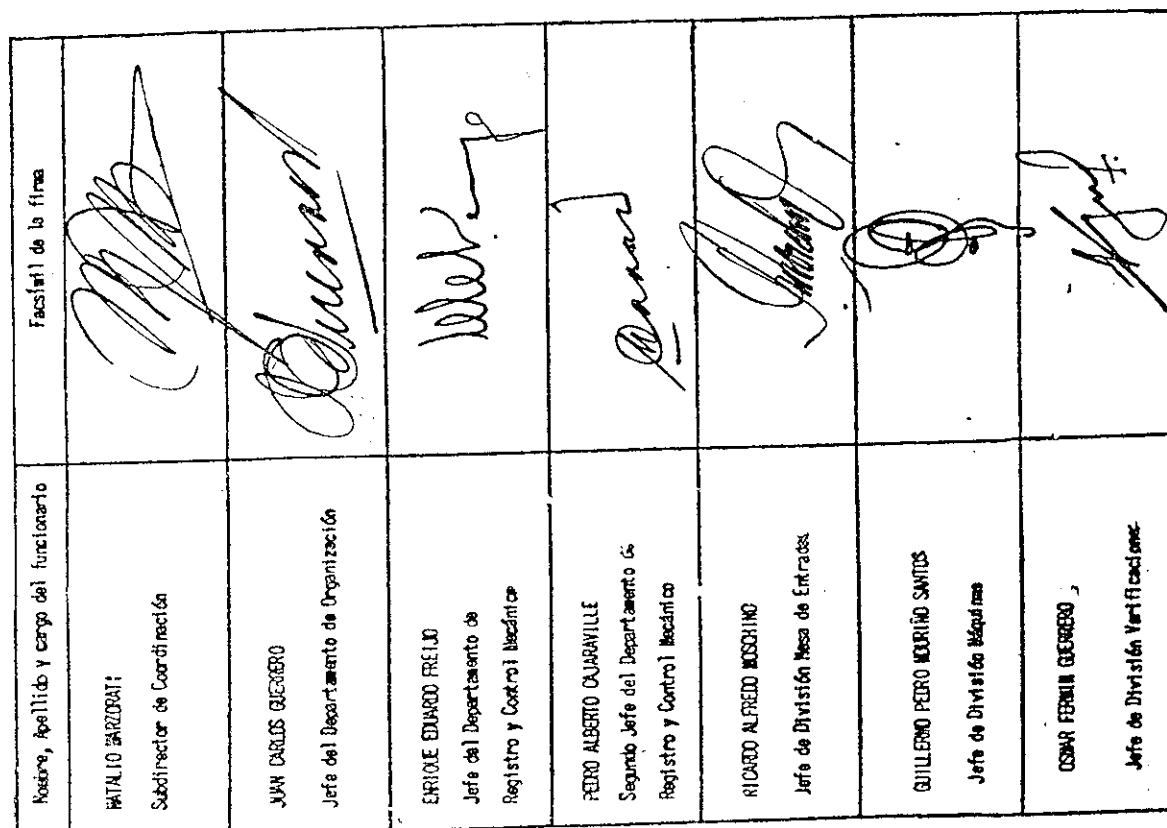 Nombre, Apellido y cargo del funcionario
Facsímil de la firma
NATALIO MARZORATI
Subdirector de Coordinación
JUAN CARLOS GUERRERO
Jefe del Departamento de Organización
ENRIQUE EDUARDO FREIJO
Jefe del Departamento de
Registro y Control Mecánico
PEDRO ALBERTO CAJARAVILLE
Segundo Jefe del Departamento de
Registro y Control Mecánico
RICARDO ALFREDO MOSCHINO
Jefe de División Mesa de Entradas
GUILLERMO PEDRO MOURIÑO SANTOS
Jefe de División Máquinas
OSMAR FERMIN GUERRERO
Jefe de División Verificaciones